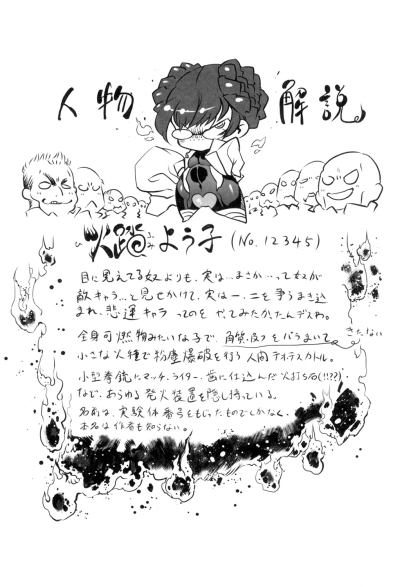 人物
解説
火踏よう子 (No.12345)
ひ ふみ
目に見えてる奴よりも、実は…まさか…って奴が
敵キャラ…と見せかけて、実は一、二を争うまき込
まれ、悲運キャラってのをやてみたかたんデスわ。
全身可燃物みたいな子で、角質・皮フをバラまいて
きたない
小さな火種で粉塵爆破を行う人間テオ・テスカトル。
小型拳銃にマッチ、ライター、歯に仕込んだ火打ち石(!!??)
など、あらゆる発火装置を隠し持っている。
名前は、実験体番号をもじったものでしかなく、
本名は作者も知らない。